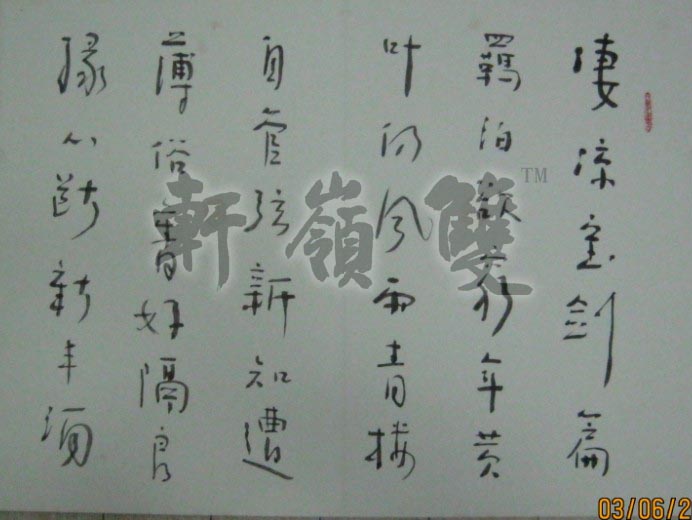 凄凉宝剑篇
羈泊欲穷年黄
叶仍风雨青楼
自管弦新知遭
薄俗舊好隔良
缘心断新丰酒
雙嶺軒™
03/06/2